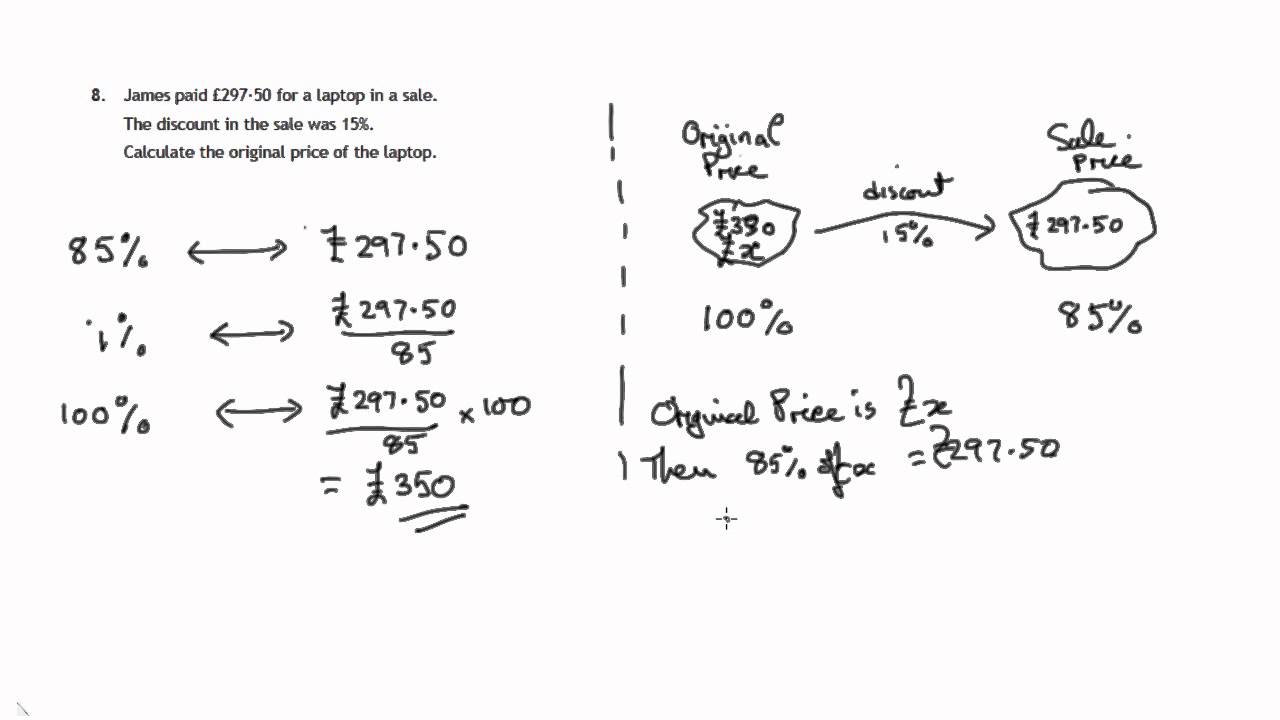 8. James paid £297·50 for a laptop in a sale.
The discount in the sale was 15%.
Calculate the original price of the laptop.
85% ↔ £297·50
1% ↔ £297·50
85
100% ↔ £297·50 × 100
85
= £350
Original
Price
£350
£x
100%
discount
15%
Sale
Price
£297·50
85%
Original Price is £x
Then 85% of x = £297·50